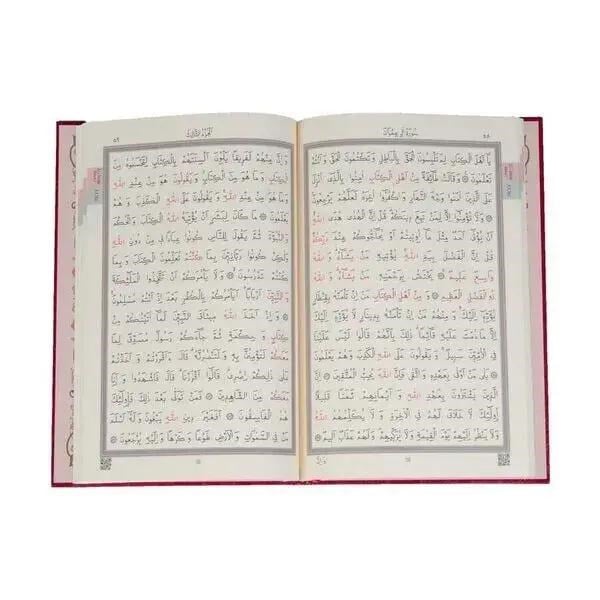 ٥٨ سورة آل عمران
يا أهل الكتاب لم تلبسون الحق بالباطل وتكتمون الحق وأنتم
تعلمون وقالت طائفة من أهل الكتاب آمنوا بالذي أنزل
على الذين آمنوا وجه النهار واكفروا آخره لعلهم يرجعون
ولا تؤمنوا إلا لمن تبع دينكم قل إن الهدى هدى الله
أن يؤتى أحد مثل ما أوتيتم أو يحاجوكم عند ربكم
قل إن الفضل بيد الله يؤتيه من يشاء والله
واسع عليم يختص برحمته من يشاء والله
ذو الفضل العظيم ومن أهل الكتاب من إن تأمنه بقنطار
يؤده إليك ومنهم من إن تأمنه بدينار لا يؤده إليك
إلا ما دمت عليه قائما ذلك بأنهم قالوا ليس علينا
في الأميين سبيل ويقولون على الله الكذب وهم يعلمون
بلى من أوفى بعهده واتقى فإن الله يحب المتقين إن
الذين يشترون بعهد الله وأيمانهم ثمنا قليلا
أولئك لا خلاق لهم في الآخرة ولا يكلمهم الله
ولا ينظر إليهم يوم القيامة ولا يزكيهم ولهم عذاب أليم
وإن
الجزء الثالث ٥٩
وإن منهم لفريقا يلون ألسنتهم بالكتاب لتحسبوه من
الكتاب وما هو من الكتاب ويقولون هو من عند الله
وما هو من عند الله ويقولون على الله الكذب وهم
يعلمون ما كان لبشر أن يؤتيه الله الكتاب والحكم
والنبوة ثم يقول للناس كونوا عبادا لي من دون الله
ولكن كونوا ربانيين بما كنتم تعلمون الكتاب وبما
كنتم تدرسون ولا يأمركم أن تتخذوا الملائكة
والنبيين أربابا أيأمركم بالكفر بعد إذ أنتم مسلمون
وإذ أخذ الله ميثاق النبيين لما آتيتكم من
كتاب وحكمة ثم جاءكم رسول مصدق لما
معكم لتؤمنن به ولتنصرنه قال أأقررتم وأخذتم
على ذلكم إصري قالوا أقررنا قال فاشهدوا وأنا
معكم من الشاهدين فمن تولى بعد ذلك فأولئك
هم الفاسقون أفغير دين الله يبغون وله أسلم
من في السموات والأرض طوعا وكرها وإليه يرجعون